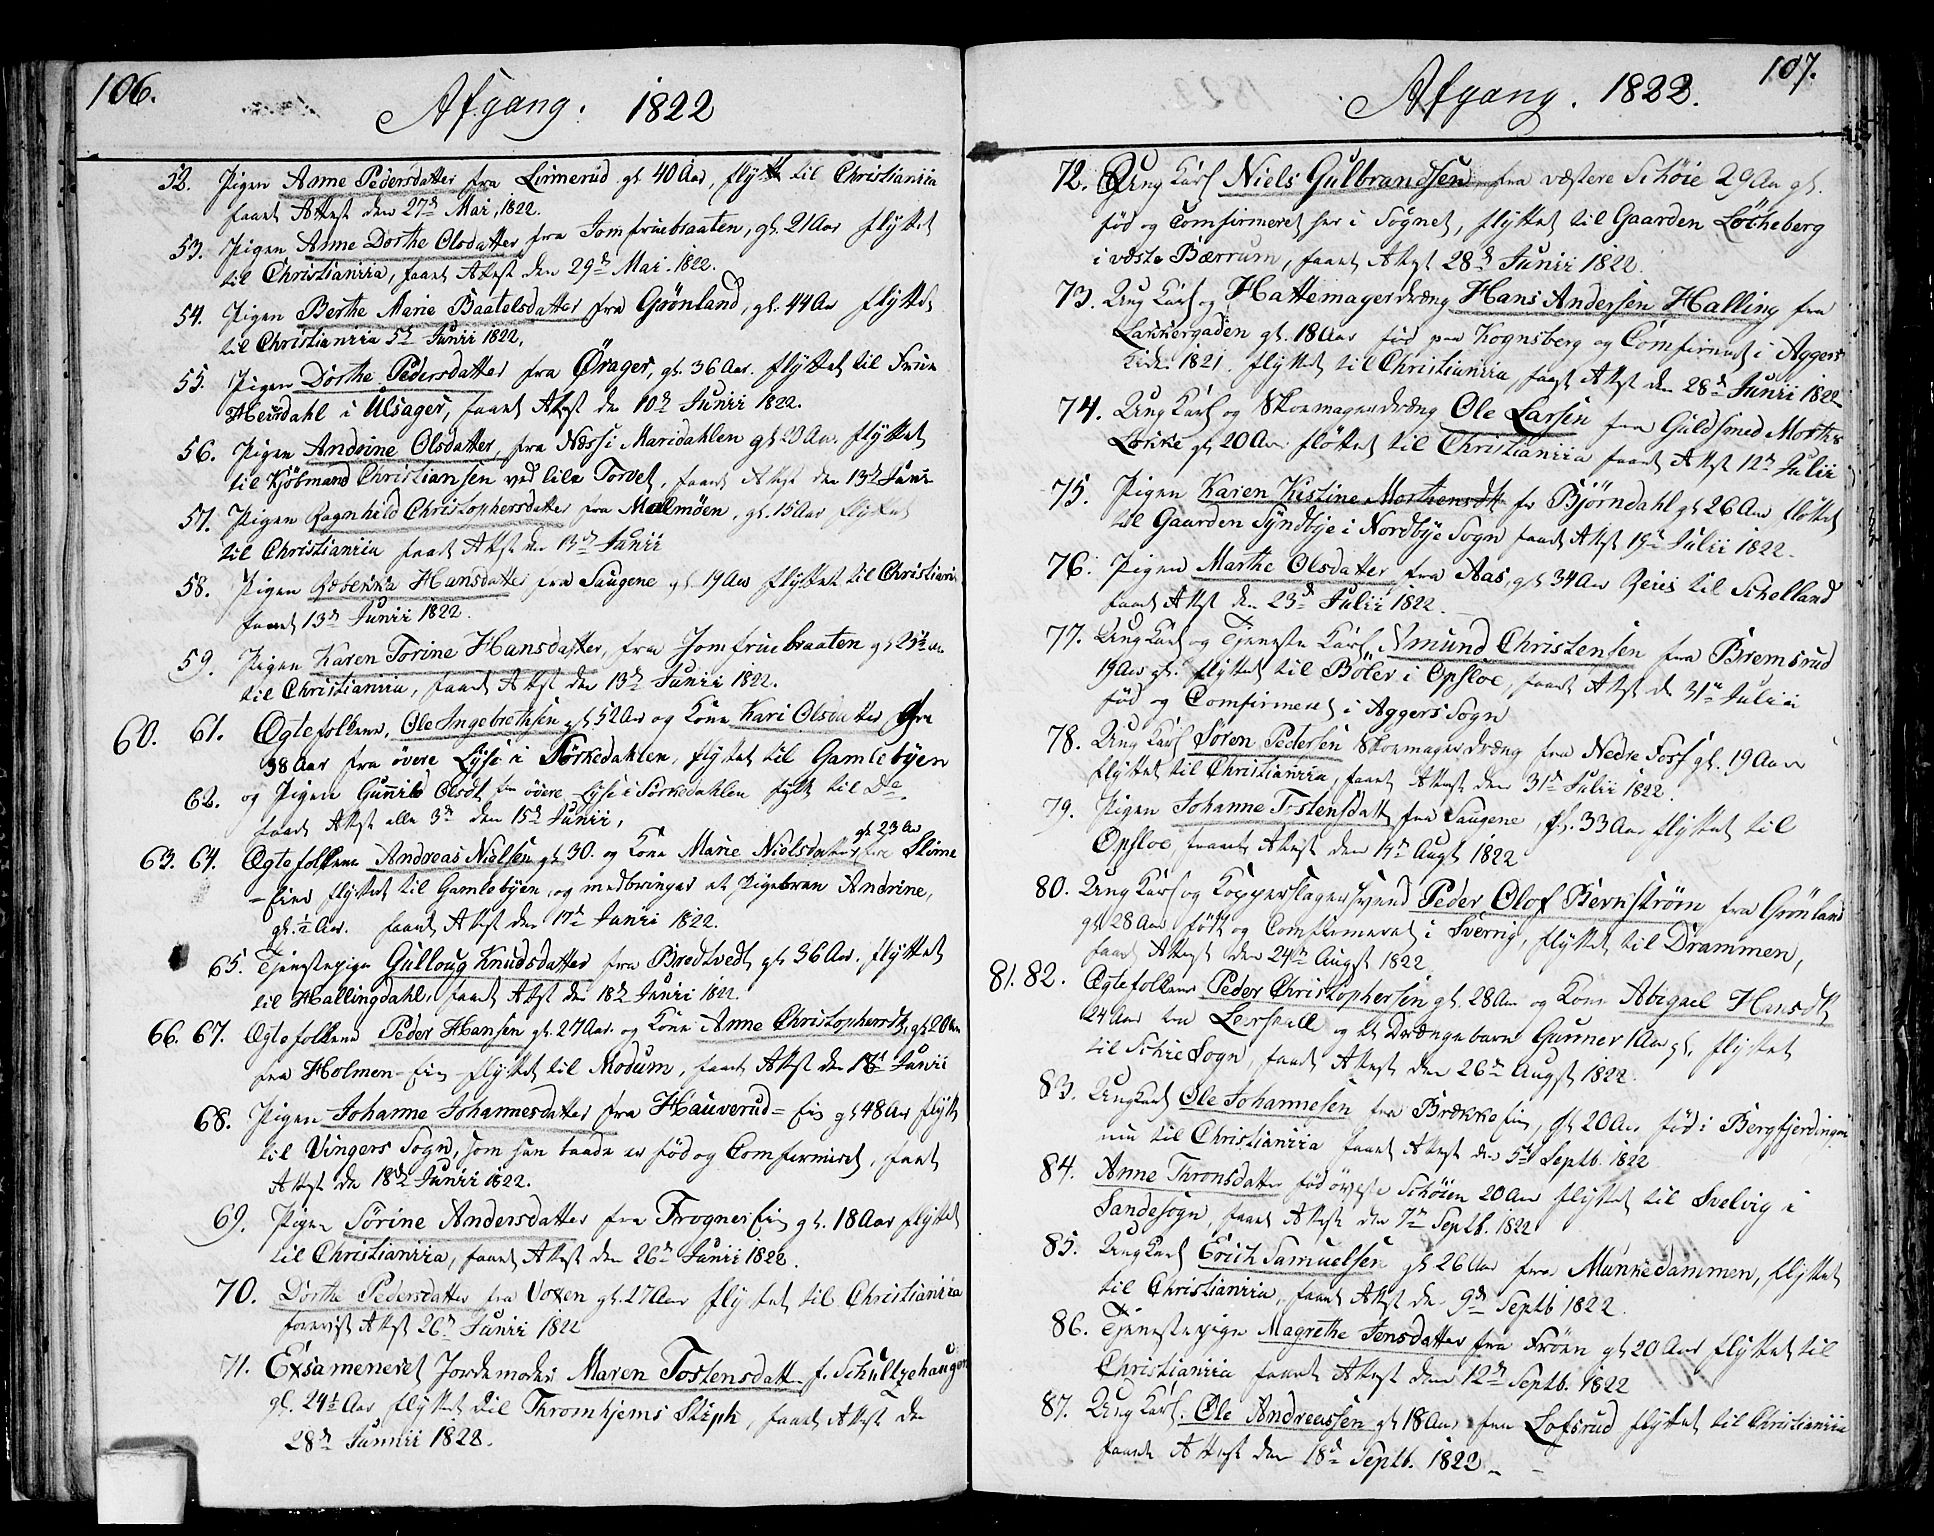 106.
Afgang. 1822
52. Pigen Anne Pedersdatter fra Linnerud gl 40 Aar, flytt til Christiania
faaet Attest den 27de Mai, 1822.
53. Pigen Anne Dorthe Olsdatter fra Jomfruebraaten, gl. 21 Aar flyttet
til Christiania, faaet Attest den 29de Mai. 1822.
54. Pigen Berthe Marie Baatelsdatter fra Grønland, gl. 44 Aar flyttet
til Christiania 5te Junii 1822.
55. Pigen Dorthe Pedersdatter fra Ørager, gl. 36 Aar. flyttet til Frue
i Ulsager, faaet Attest den 10de Junii 1822.
56. Pigen Andrine Olsdatter, fra Næss i Maridahlen gl 20 Aar. flyttet
til Kjøbmand Christiansen ved lille Torvet, faaet Attest den 13de Junii
57. Pigen Ragnhild Christophersdatter fra Malmøen, gl. 15 Aar flyttet
til Christiania faaet Attest den 13de Junii
58. Pigen Hansdatter fra Saugene gl 19 Aar flyttet til Christiania
faaet 13de Junii 1822.
59. Pigen Karen Torine Hansdatter, fra Jomfruebraaten gl
til Christiania, faaet Attest den 13de Junii 1822.
60. 61. Ægtefolkene, Ole Ingebrethsen gl 52 Aar og Kone Kari Olsdatter
38 Aar fra övere Lÿse i Sörkedahlen, flyttet til Gamlebÿen
62. og Pigen Gunnild Olsdt fra övere Lÿse i Sørkedahlen flytt til Do
faaet Attest alle 3de den 15de Junii,
63. 64. Ægtefolkene Andreas Nielsen gl 30. og Kone Marie Nielsdatter gl 23 Aar fra Slime
-Eie flyttet til Gamlebÿen, og medbringer et Pigebarn Andrine,
gl. ½ Aar. faaet Attest den 17de Junii 1822.
65. Tjenestepige Gulloug Knudsdatter fra Bredtvedt gl 36 Aar. flyttet
til Hallingdahl, faaet Attest den 18de Junii 1822.
66. 67. Ægtefolkene Peder Hansen gl. 27 Aar. og Kone Anne Christophersdt, gl 20 Aar
fra Holmen-Eie flyttet til Modum, faaet Attest den 18de Junii
68. Pigen Johanne Johannesdatter fra Hauverud-Eie gl 48 Aar flytt
til Vingers Sogn, som hun baade er fød og Comfirmeret, faaet
Attest den 18de Junii 1822.
69. Pigen Sörine Andersdatter fra Frogner Eie gl. 18 Aar flyttet
til Christiania, faaet Attest den 26de Junii 1822.
70. Dorthe Pedersdatter fra Voxen gl. 27 Aar flyttet til Christiania
forevist Attest 26de Junii 1822
71. Exsameneret Jordemoder Maren Tostensdatt f. Schultzehaugen
gl. 24½ Aar flyttet til Thromhjems Stiph, faaet Attest den
28de Junii 1822.
107.
Afgang. 1822.
72. Ung Karl Niels Gulbrandsen fra væstere Schöie 29 Aar gl.
fød og Comfirmeret her i Sognet, flyttet til Gaarden Lötheberg
i væste Bærrum, faaet Attest 28de Junii 1822.
73. Ung Karl og Hattemagerdræng Hans Andersen Halling fra
Lakkergaden gl. 18 Aar fød paa Kognsberg og Comfirmeret i Aggers
Kirke 1821. flyttet til Christiania faaet Attest den 28de Junii 1822
74. Ung Karl og Skoemagerdræng Ole Larsen fra Guldsmed Morths
Løkke gl. 20 Aar fløttet til Christiania faaet Attest 12te Julii
75. Pigen Karen Kistine Morthensdt fr Björndahl gl 26 Aar fløttet
til Gaarden Syndbye i Nordbÿe Sogn faaet Attest 19de Julii 1822.
76. Pigen Marthe Olsdatter fra Aas, gl 34 Aar Reis til Schelland
faaet Attest den 23de Julii 1822.
77. Ung Karl og Tjeneste Karl Amund Christensen fra Bremsrud
19 Aar gl. flyttet til Böler i Opsloe, faaet Attest d 31te Julii
fød og Comfirmeret i Aggers Sogn
78. Ung Karl Sören Pedersen Skoemagerdræng fra Nedre Foss gl. 19 Aar
flyttet til Christiania, faaet Attest den 31te Julii 1822.
79. Pigen Johanne Tostensdatt fra Saugene, gl. 33 Aar flyttet til
Opsloe, faaet Attest den 14de Augst 1822
80. Ung Karl og Kopperslagersvend Peder Olof Bernström fra Grønland
gl 28 Aar født og Comfirmeret i Sverrig, flyttet til Drammen,
faaet Attest den 24de Augst 1822.
81. 82. Ægtefolkene Peder Christophersen gl. 28 Aar og Kone Abigael Hansdt
24 Aar fra Leirskall og et Drængebarn Gunner 1 Aar gl. flyttet
til Schie Sogn, faaet Attest den 26de Augst 1822.
83. Ung Karl Ole Johannesen fra Brække Eie, gl 20 Aar fød i Bergfjerdingen
nu til Christiania faaet Attest den 5te Septb. 1822
84. Anne Thronsdatter fød öveste Schöien 20 Aar flyttet til Svelvig i
Sandesogn, faaet Attest den 7de Septb. 1822
85. Ung Karl Erich Samuelsen gl 26 Aar fra Munkedammen, flyttet
til Christiania, faaet Attest den 9de Septb 1822.
86. Tjenestepige Magrethe Jensdatter fra Fröen gl 20 Aar flyttet til
Christiania faaet Attest den 12te Septb. 1822
87. Ung Karl. Ole Andreassen gl 18 Aar fra Lofsrud flyttet til Christiania
faaet Attest den 18de Septb. 1822.